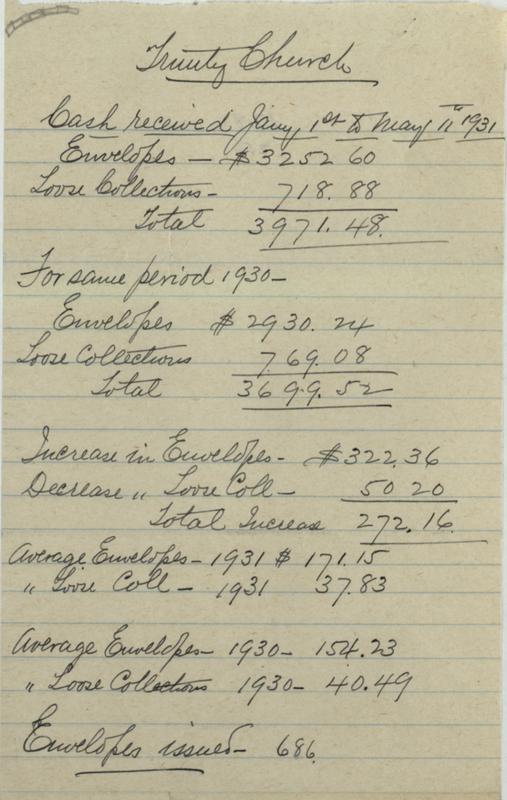 Trinity Church
Cash received Jany 1st to May 11th 1931
Envelopes — $3252 60
Loose Collections - 718.88
Total 3971.48.
For same period 1930 -
Envelopes $2930.24
Loose Collections 769.08
Total 3699.52
Increase in Envelopes - $322.36
Decrease " Loose Coll - 50 20
Total Increase 272.16
Average Envelopes - 1931 $171.15
" Loose Coll - 1931 37.83
Average Envelopes - 1930 - 154.23
" Loose Collections 1930 - 40.49
Envelopes issued - 686.